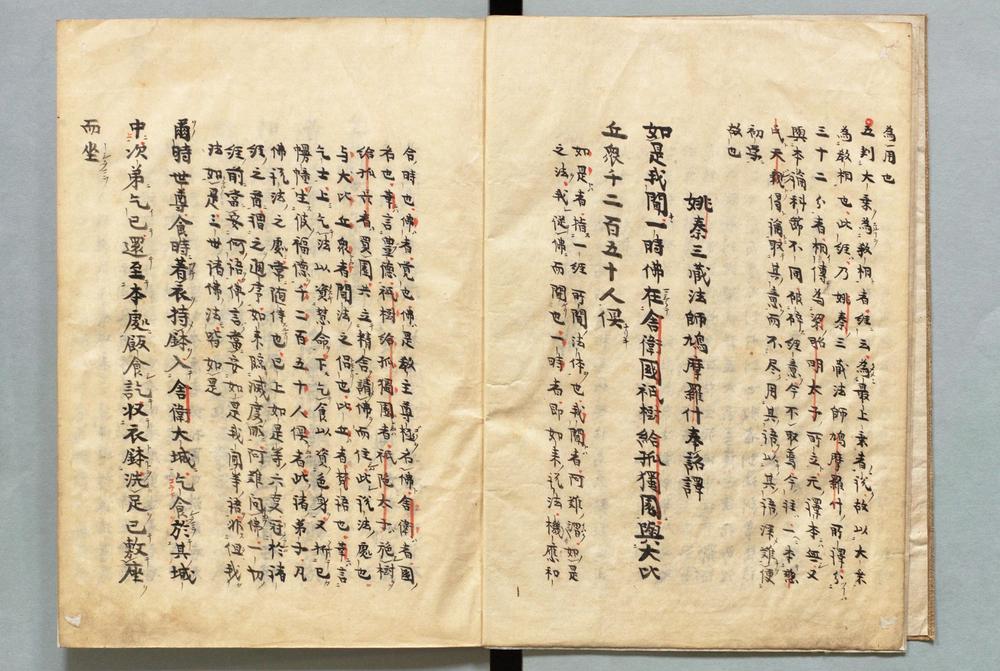 為用也
五判大乗為教相者経云為最上乗者説故以大乗
為教相也此経乃姚秦三蔵法師鳩摩羅什所譯分
三十二分者相傳為梁昭明太子可立元譯本無又
與本論科節不同破碎経意今不取焉今往一本惣
氏天親得論取其意而不尽用其語以其語深難便
初学
故也
姚秦三蔵法師鳩摩羅什奉詔譯
如是我聞一時佛在舎衛國祇樹給孤獨園與大比
丘衆千二百五十人俱
如是者指一経所聞法体也我聞者阿難謂如是
之法我従佛而聞也一時者即如来説法機應和
合時也佛者覚也佛是教主尊極名佛舎衛者國
名也華言豊徳祇樹給孤獨園者祇陀太子施樹
給孤長者買園共立精舎請佛而住此説法處也
与大比丘衆者聞法之侶也比丘者梵語也華言
乞士上乞法以資慧命下乞食以資色身又折已
慢幢生彼福徳千二百五十人俱者此諸弟子凡
佛説法之處常随佛也已上如是等六変冠於諸
経之首謂之通序如来臨滅度時阿難問佛一切
経前當安何語佛言當安如是我聞等語非但我
法如是三世諸佛法皆如是
爾時世尊食時著衣持鉢入舎衛大城乞食於其城
中次第乞已還至本處飯食訖収衣鉢洗足已敷座
而坐